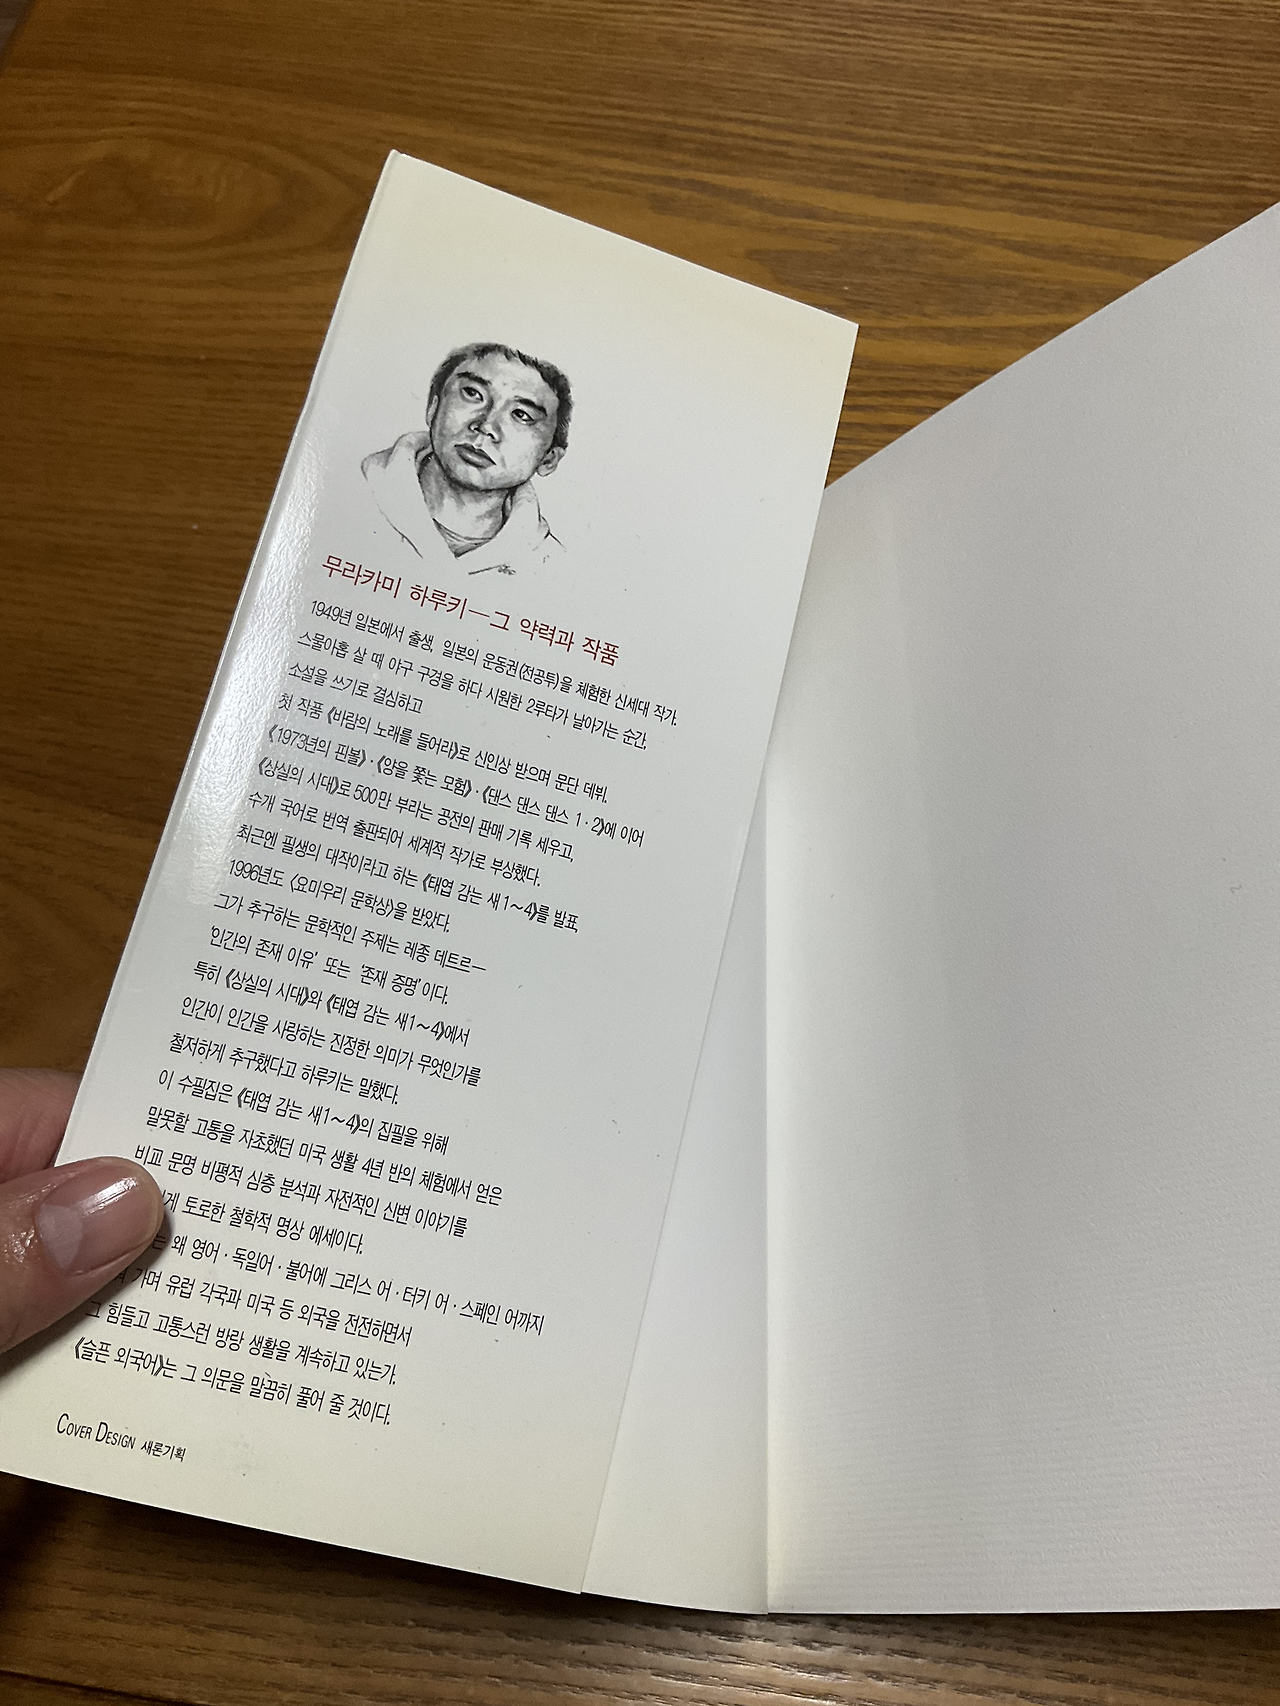 무라카미 하루키—그 약력과 작품
1949년 일본에서 출생, 일본의 운동권(전공투)을 체험한 신세대 작가.
스물아홉 살 때 야구 구경을 하다 시원한 2루타가 날아가는 순간,
소설을 쓰기로 결심하고
첫 작품 《바람의 노래를 들어라》로 신인상 받으며 문단 데뷔.
《1973년의 핀볼》·《양을 쫓는 모험》·《댄스 댄스 댄스 1·2》에 이어
《상실의 시대》로 500만 부라는 공전의 판매 기록 세우고,
수개 국어로 번역 출판되어 세계적 작가로 부상했다.
최근엔 필생의 대작이라고 하는 《태엽 감는 새1~4》를 발표,
1996년도 〈요미우리 문학상〉을 받았다.
그가 추구하는 문학적인 주제는 레종 데트르—
'인간의 존재 이유' 또는 '존재 증명'이다.
특히 《상실의 시대》와 《태엽 감는 새1~4》에서
인간이 인간을 사랑하는 진정한 의미가 무엇인가를
철저하게 추구했다고 하루키는 말했다.
이 수필집은 《태엽 감는 새1~4》의 집필을 위해
말못할 고통을 자초했던 미국 생활 4년 반의 체험에서 얻은
비교 문명 비평적 심층 분석과 자전적인 신변 이야기를
게 토로한 철학적 명상 에세이다.
는 왜 영어·독일어·불어에 그리스 어·터키 어·스페인 어까지
가며 유럽 각국과 미국 등 외국을 전전하면서
그 힘들고 고통스런 방랑 생활을 계속하고 있는가.
《슬픈 외국어》는 그 의문을 말끔히 풀어 줄 것이다.
COVER DESIGN 새론기획